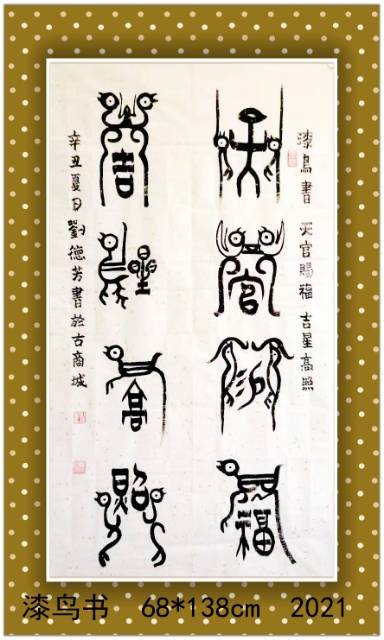 漆鳥書 天官賜福 吉星高照
天官賜福
吉星高照
辛丑夏日劉德芳書於古商城
漆鸟书 68*138cm 2021